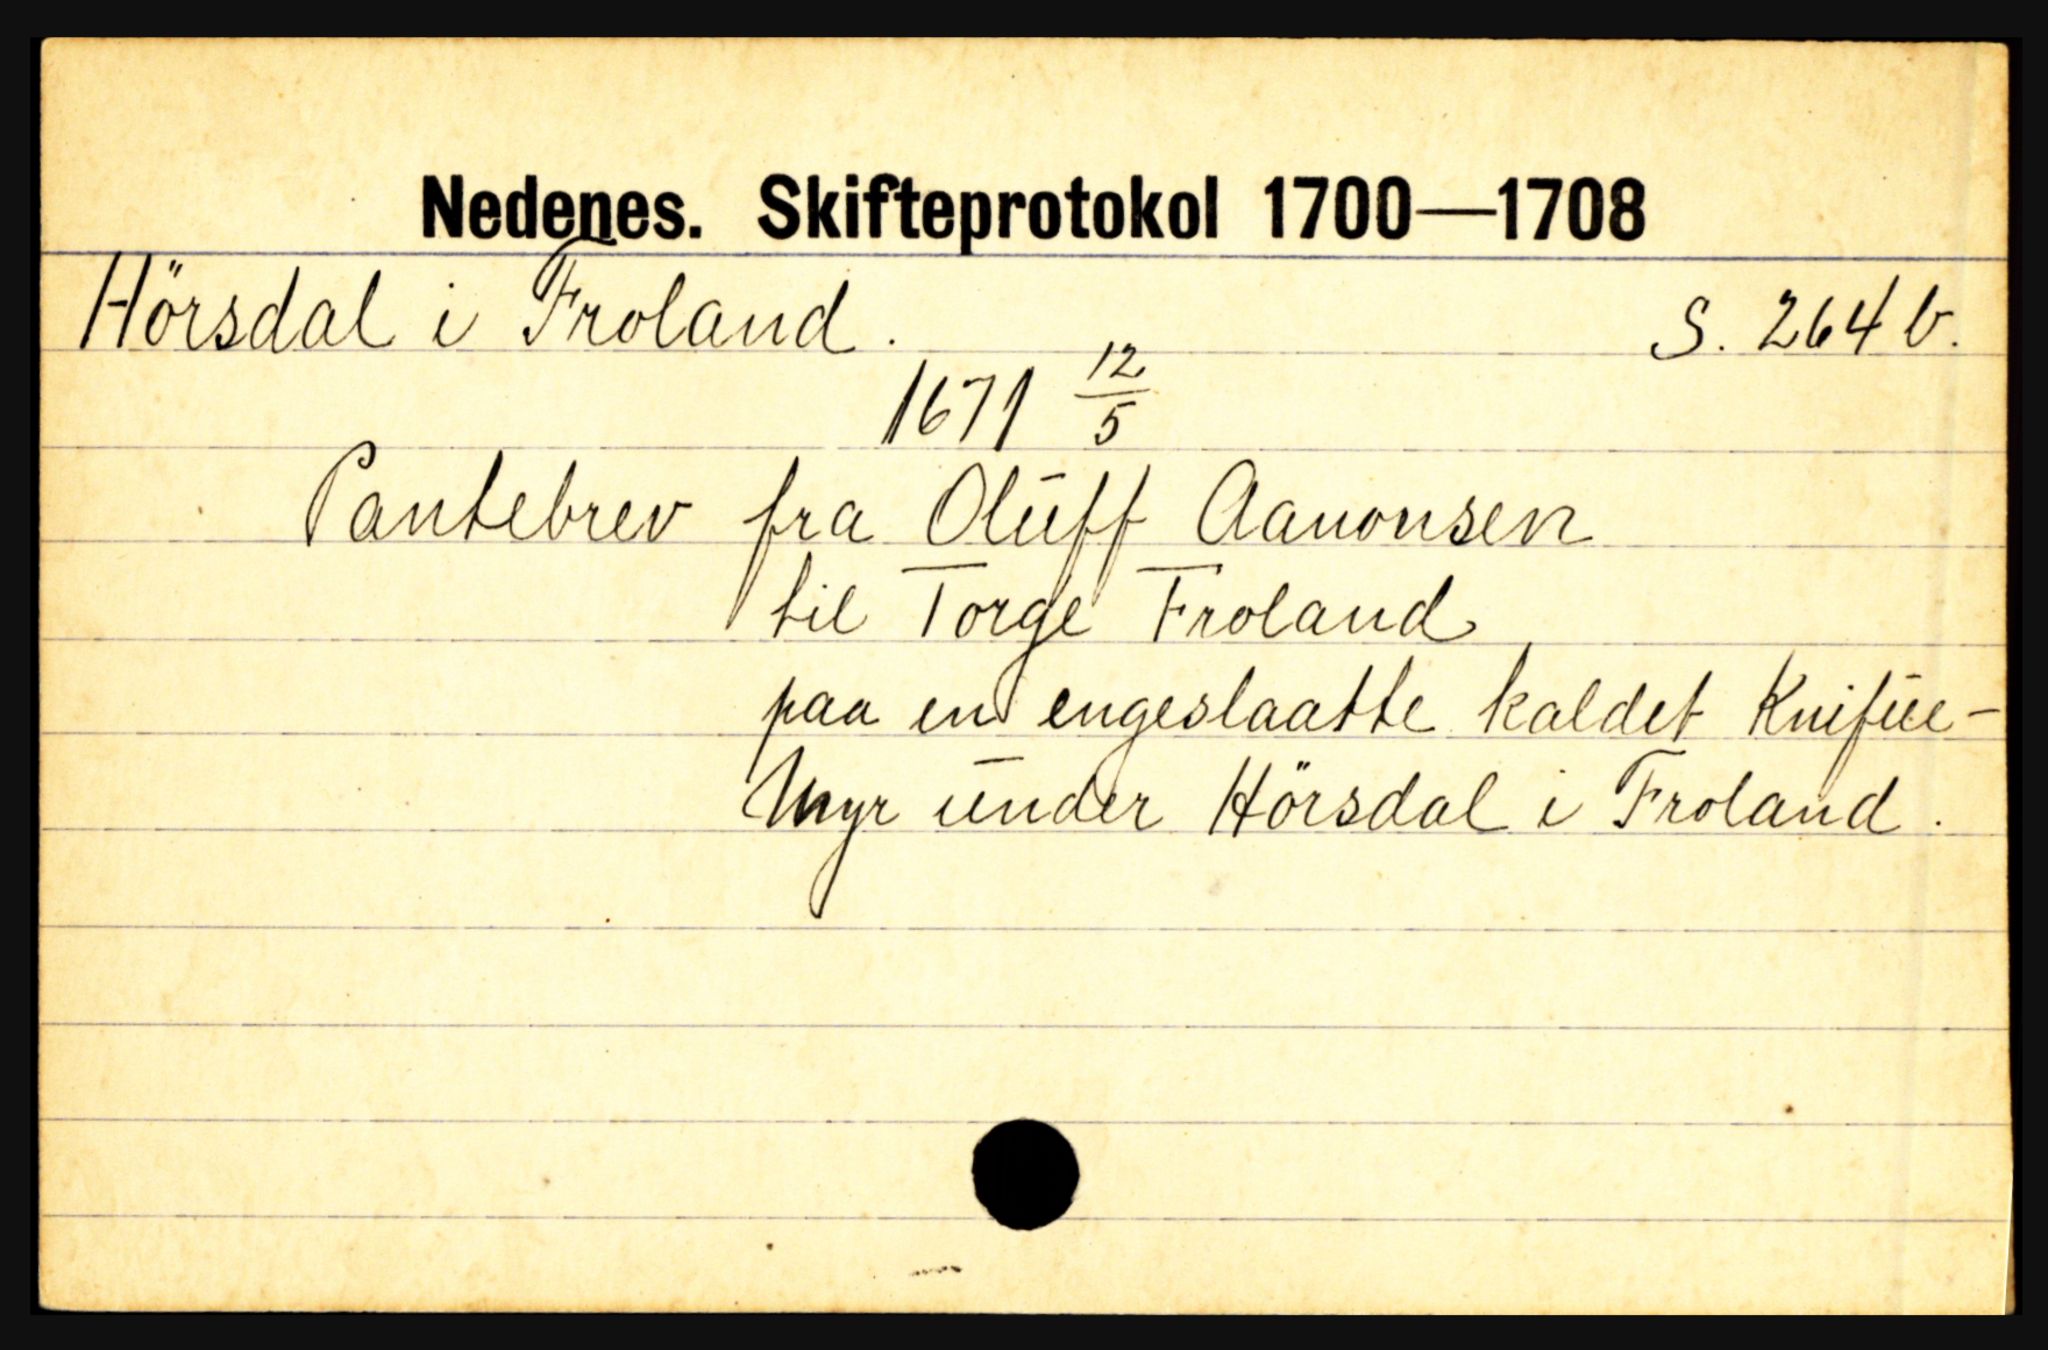 Nedenes. Skifteprotokol 1700—1708
Hörsdal i Froland. S. 264 b.
1671 12/5
Pantebrev fra Oluff Aanonsen
til Torge Froland
paa en engeslaatte kaldet Knifue-
Myr under Hörsdal i Froland.